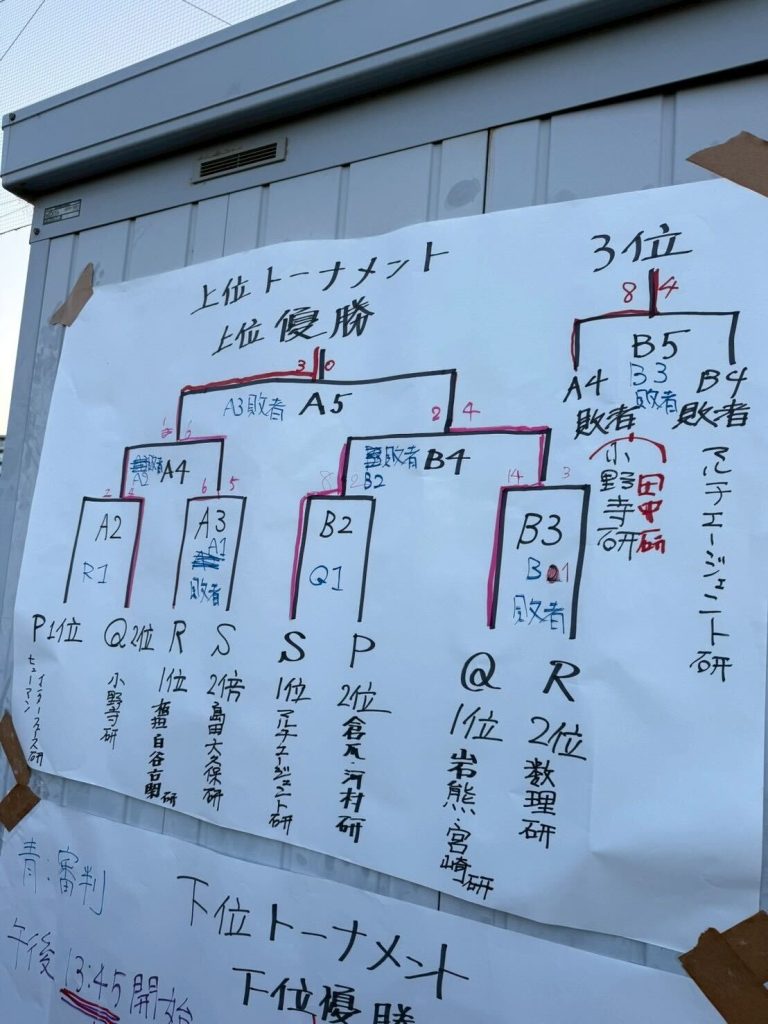 上位トーナメント
上位優勝
3位
8 4
3 0
A3敗者 A5
B5
B3
敗者
A4
敗者
B4
敗者
小野寺研
田中研
マルチエージェント研
2 4
A4
敗者 B4
B2
6 5
8 2
14 3
A2
R1
A3
A1
敗者
B2
Q1
B3
B1
敗者
P1位
ヒューマンインターフェース研
Q2位
小野寺研
R
1位
S
2倍
島田大久保研
S
1位
マルチエージェント研
P
2位
倉瓦・河村研
Q
1位
岩熊・宮崎研
R
2位
数理研
青:審判
午後 13:45開始
下位トーナメント
下位優勝